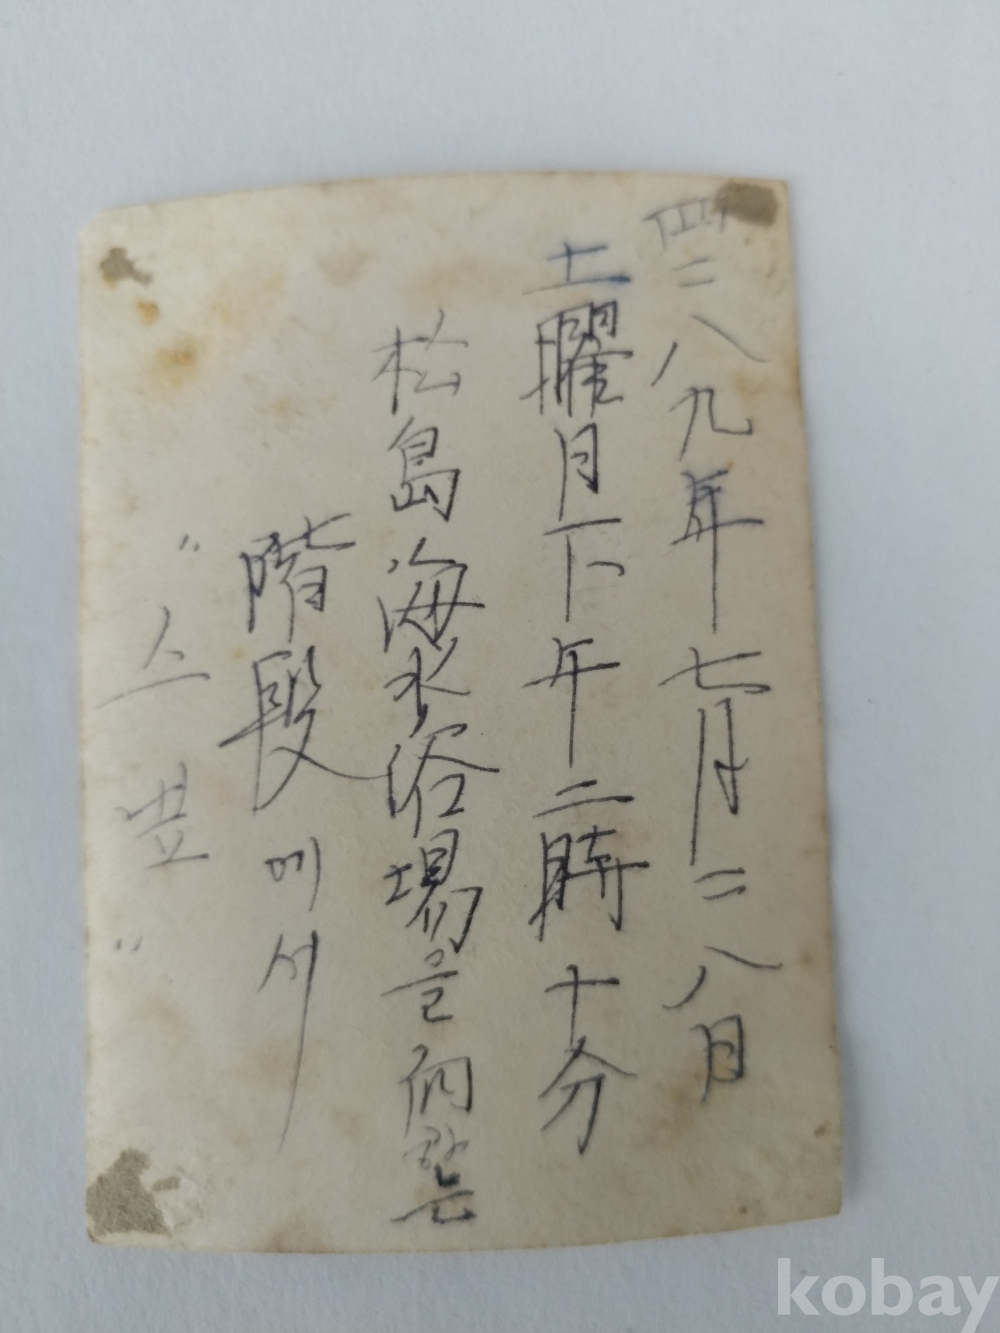 四二八九年七月二八日
土曜日下午二時十分
松島海水浴場을 向하는
階段에서
" 스 "
kobay